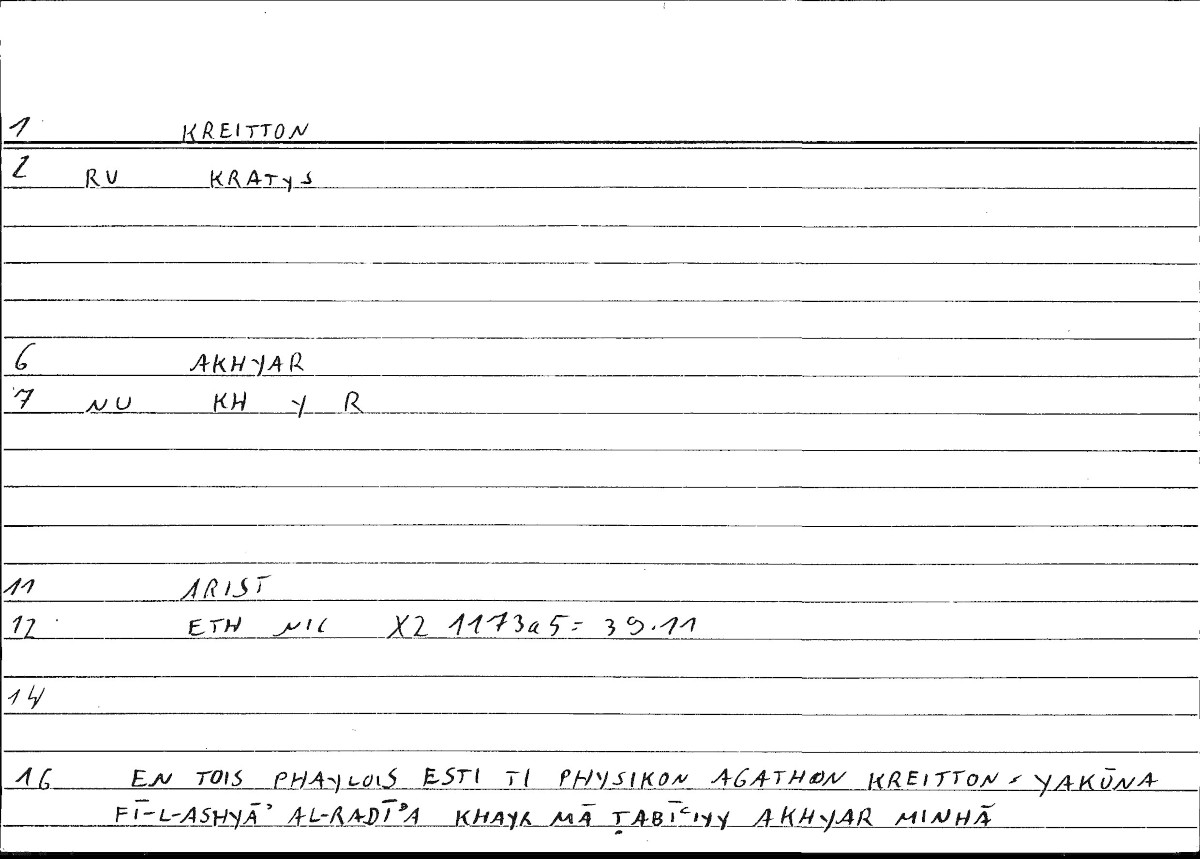 1 KREITTON
2 RU KRATYS
6 AKHYAR
7 NU KH Y R
11 ARIST
12 ETH NIC X2 1173a5 = 39.11
14
16 EN TOIS PHAYLOIS ESTI TI PHYSIKON AGATHON KREITTON = YAKŪNA
FĪ-L-ASHYĀʾ AL-RADĪʾA KHAYR MĀ ṬABĪʿIYY AKHYAR MINHĀ